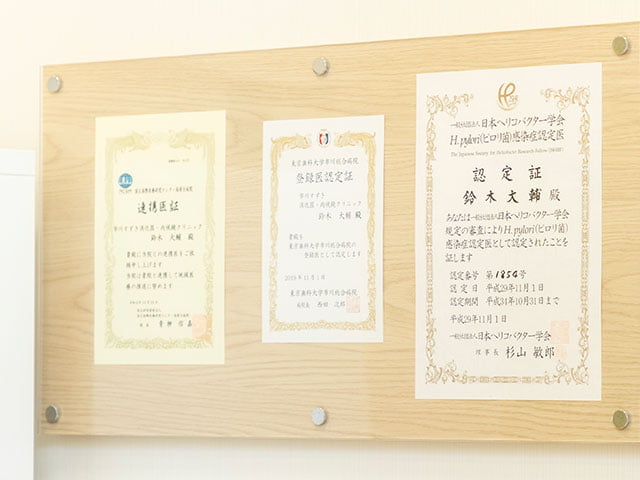 連携医証
市川すずき
消化器・内視鏡クリニック
鈴木 大輔 殿
貴院に当院との連携医をご依
頼申し上げます
当院は貴院と連携して地域医
療の推進に努めます
院長 青柳 信嘉
東京歯科大学市川総合病院
登録医認定証
市川すずき
消化器・内視鏡クリニック
鈴木 大輔 殿
貴殿を
東京歯科大学市川総合病院の
登録医として認定します
2019年11月1日
東京歯科大学市川総合病院
病院長 西田 次郎
一般社団法人 日本ヘリコバクター学会
H. pylori(ピロリ菌)感染症認定医
The Japanese Society for Helicobacter Research Fellow (JSHRF)
認定証
鈴木大輔 殿
あなたは一般社団法人日本ヘリコバクター学会
規定の審査によりH. pylori(ピロリ菌)
感染症認定医として認定されたことを
証します
認定番号 第1854号
認定日 平成29年11月1日
認定期間 平成34年10月31日まで
平成29年11月1日
一般社団法人日本ヘリコバクター学会
理事長 杉山 敏郎